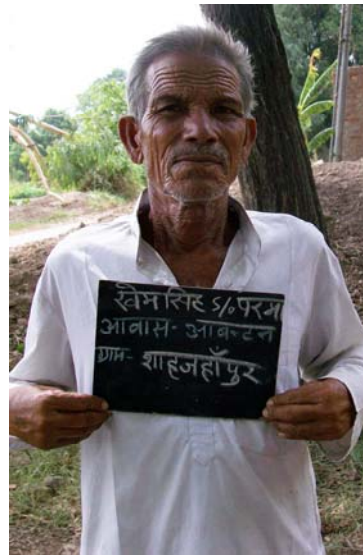 खेम सिंह S/o परम
आवास- आबन्टन
ग्राम- शाहजहाँपुर